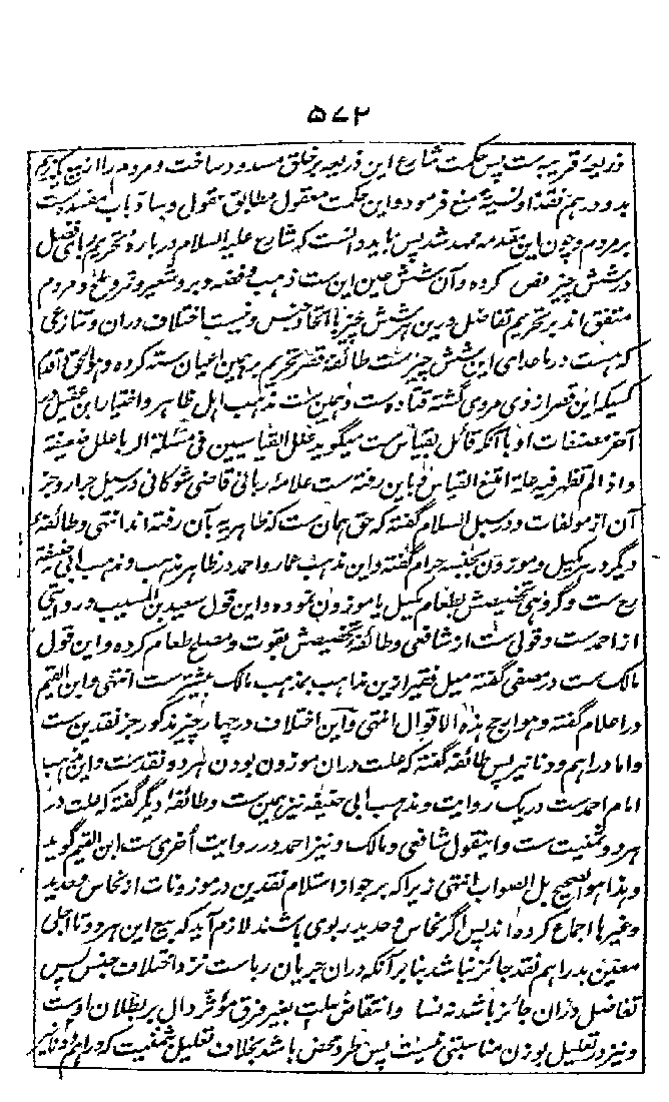 ۵۷۲
ذریعهٔ قریبه ست پس حکمت شارع این ذریعه بر خلق مسدود ساخت و مردم را از بیع یکدرهم
بدو درهم نقداً و نسیةً منع فرمود و این حکمت معقول مطابق منقول و ساد باب مفسده ست
بر مردم و چون این مقدمه ممهد شد پس باید دانست که شارع علیه السلام در بارهٔ تحریم ربا تفضیل
در شش چیز نص کرده و آن شش عین این ست ذهب و فضه و بر و شعیر و تمر و ملح و مردم
متفق اند بر تحریم تفاضل درین هر شش چیز با اتحاد جنس و نیست اختلاف دران و تنازعی
که هست در ماعدای این شش چیز ست طائفه قصر تحریم بر همین اعیان سته کرده و هو الحق اقدم
کسیکه این قصر از وی مروی گشته قتاده ست و همین ست مذهب اهل ظاهر و اختیار ابن عقیل در
آخر مصنفات او با آنکه قائل بقیاس ست میگوید علل القیاسیین فی مسئلة الربا علل ضعیفة
و اذا لم تظهر فیه علة امتنع القیاس و باین رفته ست علامهٔ ربانی قاضی شوکانی در سیل جرار و جز
آن از مولفات و در سبل السلام گفته که حق همان ست که ظاهریه بآن رفته اند انتهی و طائفهٔ
دیگر در هر مکیل و موزون بجنسه حرام گفته و این مذهب عمار و احمد در ظاهر مذهب و مذهب ابی حنیفه
رح ست و گروهی تخصیصش بطعام مکیل یا موزون نموده و این قول سعید بن المسیب و در روایتی
از احمد ست و قولی ست از شافعی و طائفه تخصیصش بقوت و مصلح طعام کرده و این قول
مالک ست در مصفی گفته میل فقیر ازین مذاهب بمذهب مالک بیشتر ست انتهی و ابن القیم
در اعلام گفته و هو ارجح هذه الاقوال انتهی و این اختلاف در چهار چیز مذکور جز نقدین ست
و اما دراهم و دنانیر پس طائفه گفته که علت دران موزون بودن هر دو نقد ست و این مذهب
امام احمد ست در یک روایت و مذهب ابی حنیفه نیز همین ست و طائفهٔ دیگر گفته که علت در
هر دو ثمنیت ست و این قول شافعی و مالک و نیز احمد در روایت اخری ست ابن القیم گوید
و هذا هو الصحیح بل الصواب انتهی زیرا که بر جواز استلام نقدین در موزونات از نحاس و حدید
و غیرها اجماع کرده اند پس اگر نحاس و حدید ربوی باشند لازم آید که بیع این هر دو تا اجل
معین بدراهم نقد جائز نباشد بنا بر آنکه دران جریان رباست نزد اختلاف جنس پس
تفاضل دران جائز باشد نه نسا و انتقاض علت بغیر فرق مؤثر دال بر بطلان اوست
و نیز در تعلیل بوزن مناسبتی نیست پس طرد محض باشد بخلاف تعلیل بثمنیت که دراهم و دنانیر